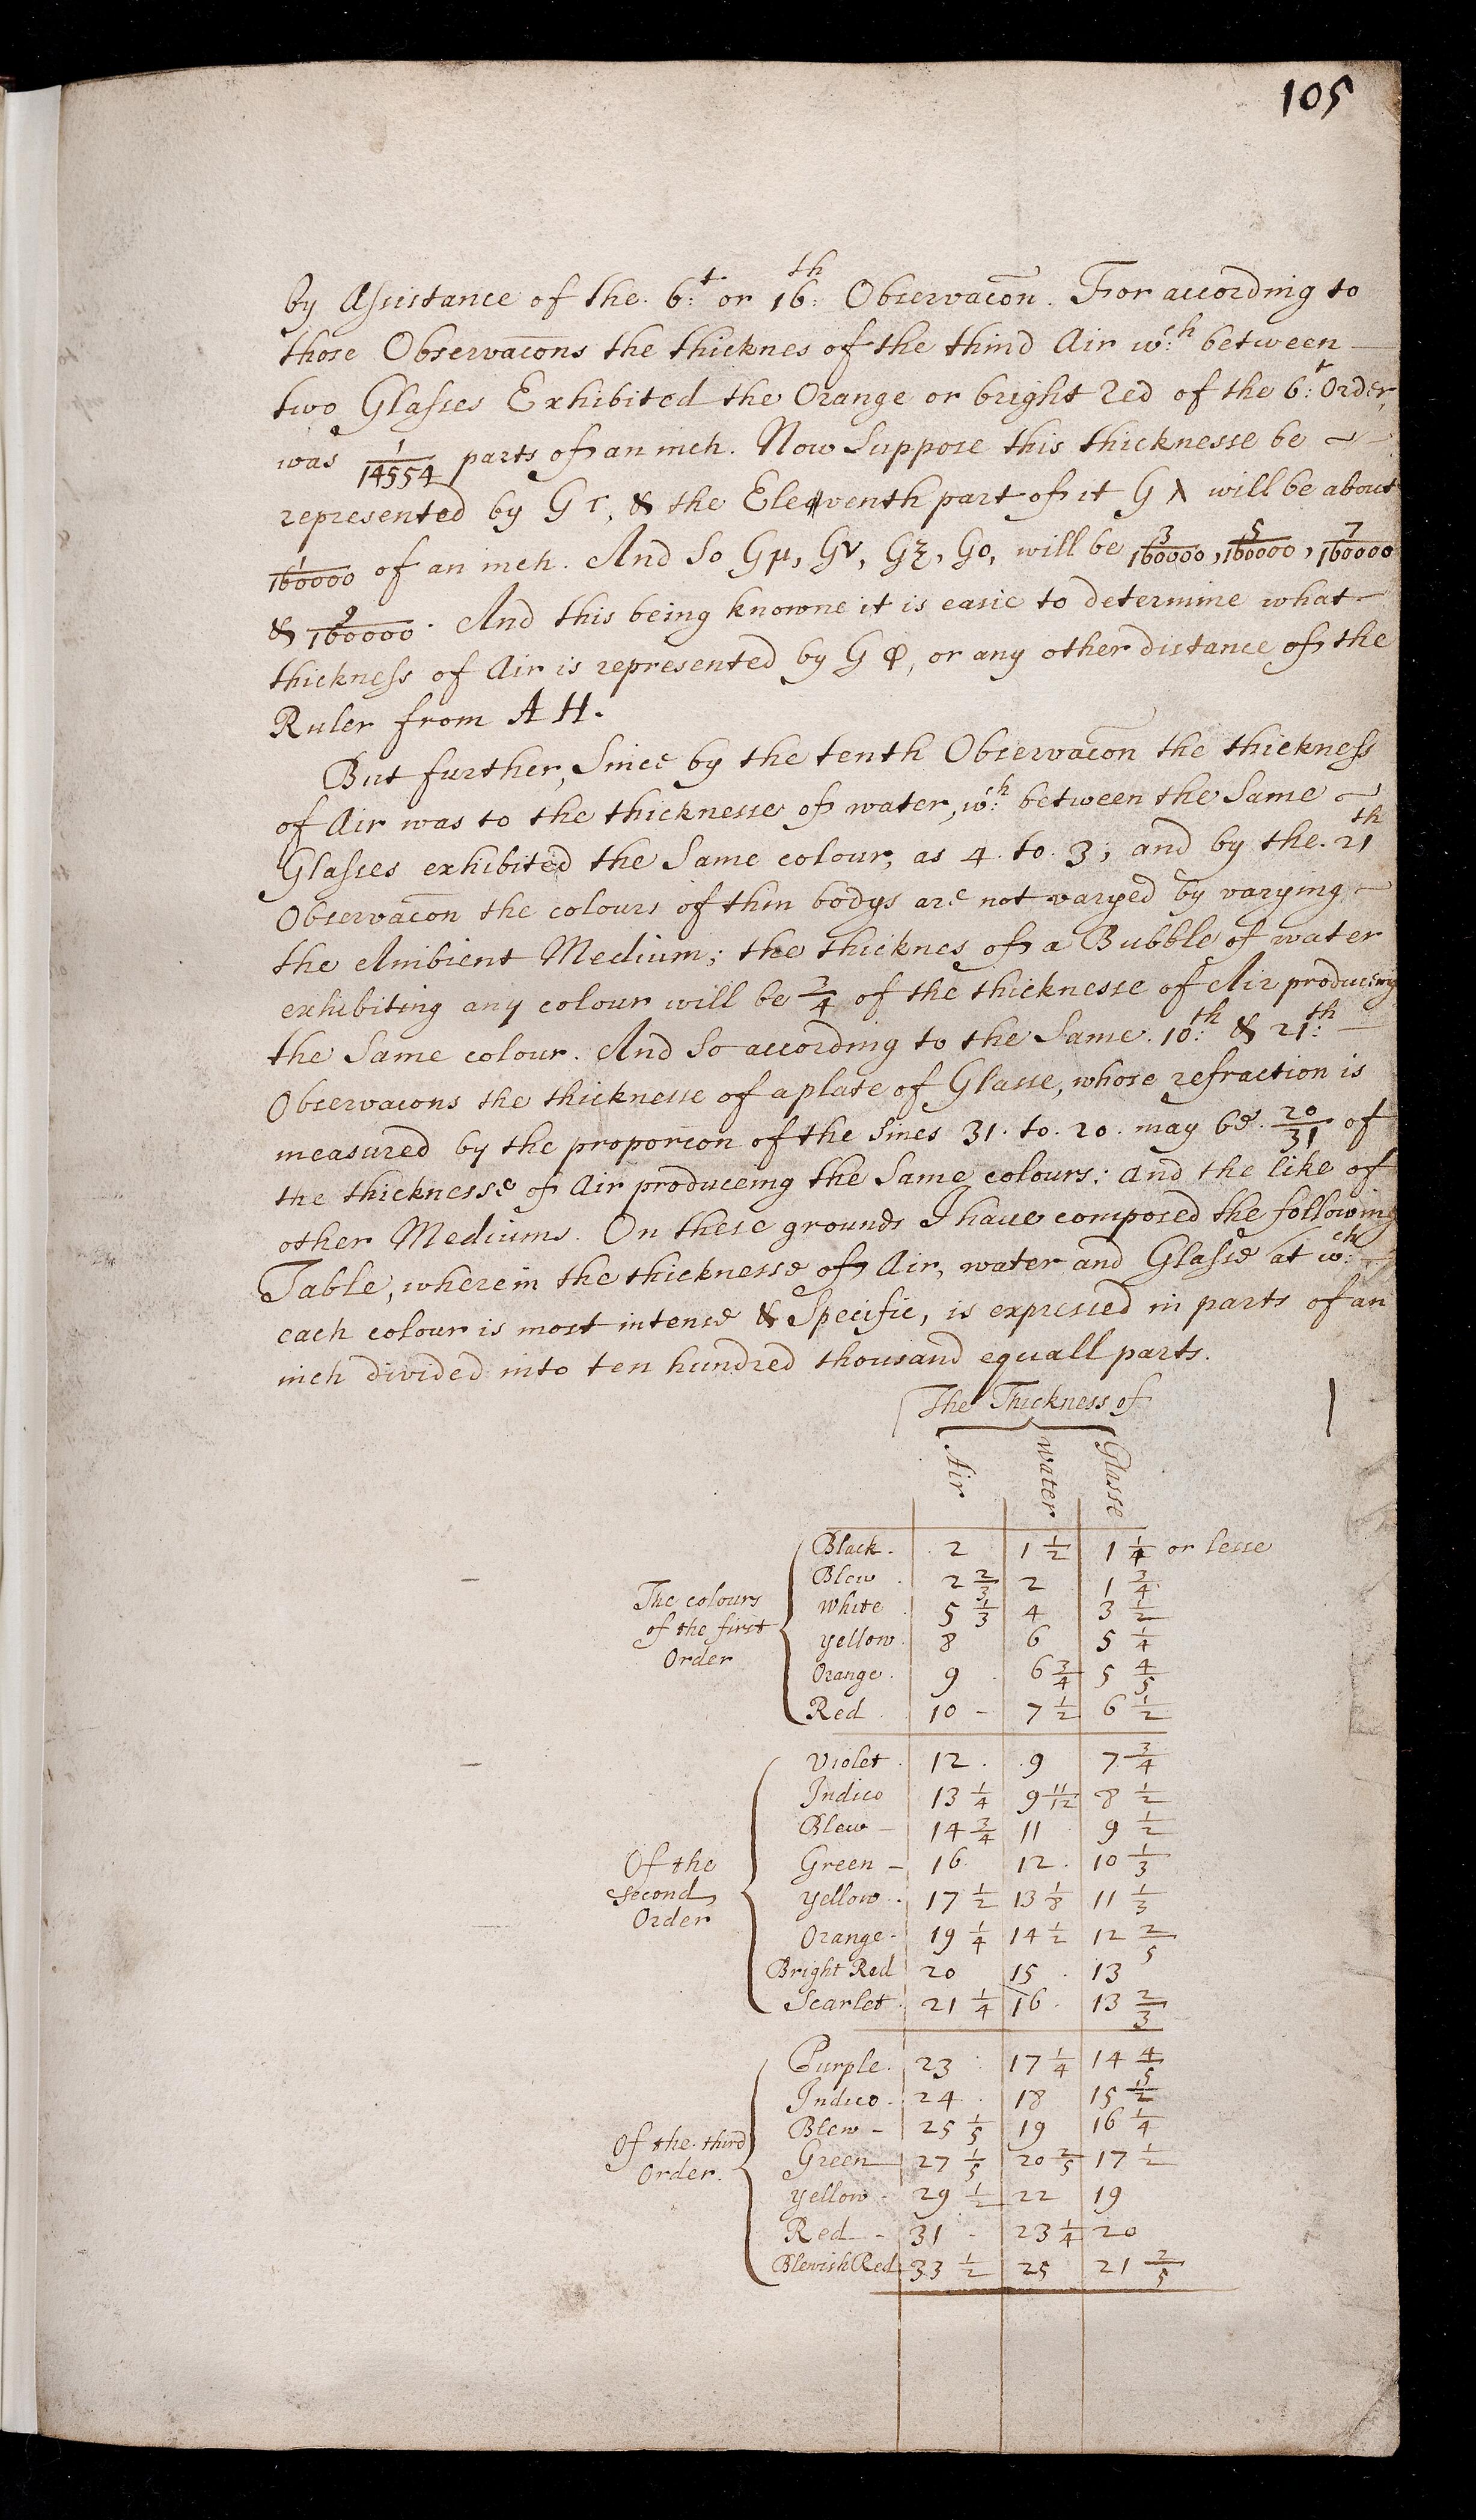 105
by Assistance of the. 6:t or 16:th Observacōn. For according to
those Observacōns the thicknes of the thind Air w:ch between
two Glasses Exhibited the Orange or bright Red of the 6:t Order,
was 1/14554 parts of an inch. Now Suppose this thicknesse be
represented by G τ, & the Eleventh part of it G λ will be about
1/160000 of an inch. And So Gμ, Gν, Gξ, Go, will be 3/160000, 5/160000, 7/160000
& 9/160000. And this being knowne it is easie to determine what
thickness of Air is represented by G φ, or any other distance of the
Ruler from A H.
But further, Since by the tenth Observacōn the thickness
of Air was to the thicknesse of water, w:ch between the Same
Glasses exhibited the Same colour, as 4. to. 3; and by the. 21th
Observacōn the colours of thin bodys are not varyed by varying
the Ambient Medium; the thicknes of a Bubble of water
exhibiting any colour will be 3/4 of the thicknesse of Air produceing
the Same colour. And So according to the Same. 10:th & 21:th
Observacons the thicknesse of a plate of Glasse, whose refraction is
measured by the proporcon of the Sines 31. to. 20. may be. 20/31 of
the thicknesse of Air produceing the Same colours: and the like of
other Mediums. On these grounds I have composed the following
Table, wherein the thicknesse of Air, water and Glasse at w:ch
each colour is most intense & Specific, is expressed in parts of an
inch divided into ten hundred thousand equall parts.
The Thickness of
Air water Glasse
The colours of the first Order
Black. 2 1 1/2 1 1/4 or lesse
Blew. 2 2/3 2 1 3/4
White. 5 1/3 4 3 1/2
Yellow. 8 6 5 1/4
Orange. 9 6 3/4 5 4/5
Red 10 - 7 1/2 6 1/2
Of the second Order
Violet. 12. 9 7 3/4
Indico 13 1/4 9 11/12 8 1/2
Blew - 14 3/4 11 9 1/2
Green - 16. 12. 10 1/3
Yellow. 17 1/2 13 1/8 11 1/3
Orange. 19 1/4 14 1/2 12 2/5
Bright Red 20 15. 13
Scarlet. 21 1/4 16. 13 2/3
Of the. third Order.
Purple. 23 17 1/4 14 4/5
Indico. 24. 18 15 1/2
Blew - 25 1/5 19 16 1/4
Green 27 1/5 20 2/5 17 1/2
Yellow. 29 1/2 22 19
Red - 31 - 23 1/4 20
Blewish Red 33 1/2 25 21 2/5